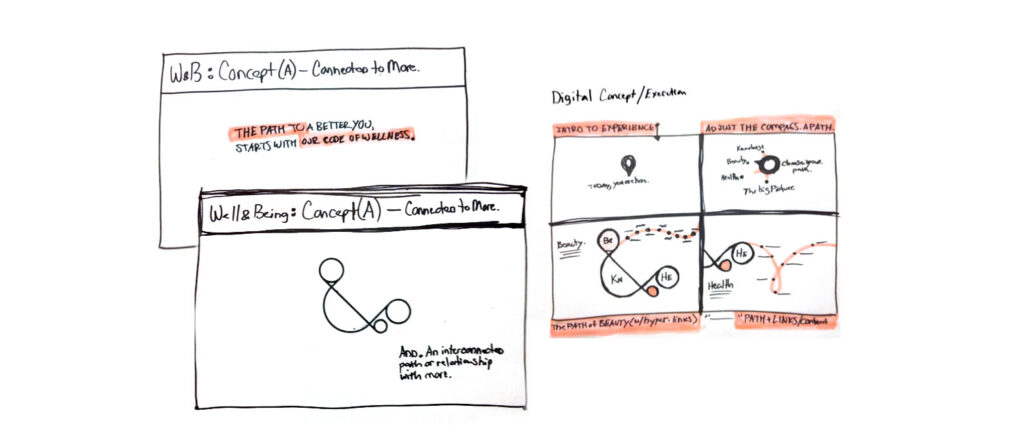 W&B: Concept (A) – Connected to More.
THE PATH TO A BETTER YOU,
STARTS WITH OUR CODE OF WELLNESS.
Well & Being: Concept (A) – Connected to More.
And. An interconnected
path or relationship
with more.
Digital Concept/Execution
INTRO TO EXPERIENCE
ADJUST THE COMPASS. A PATH.
TODAY, you are here.
Knowledge
Beauty
Health
Choose your
path.
The big Picture
Beauty.
Be
Kn
He
He
Health
The PATH of BEAUTY (w/hyper-links)
"PATH + LINKS/Content